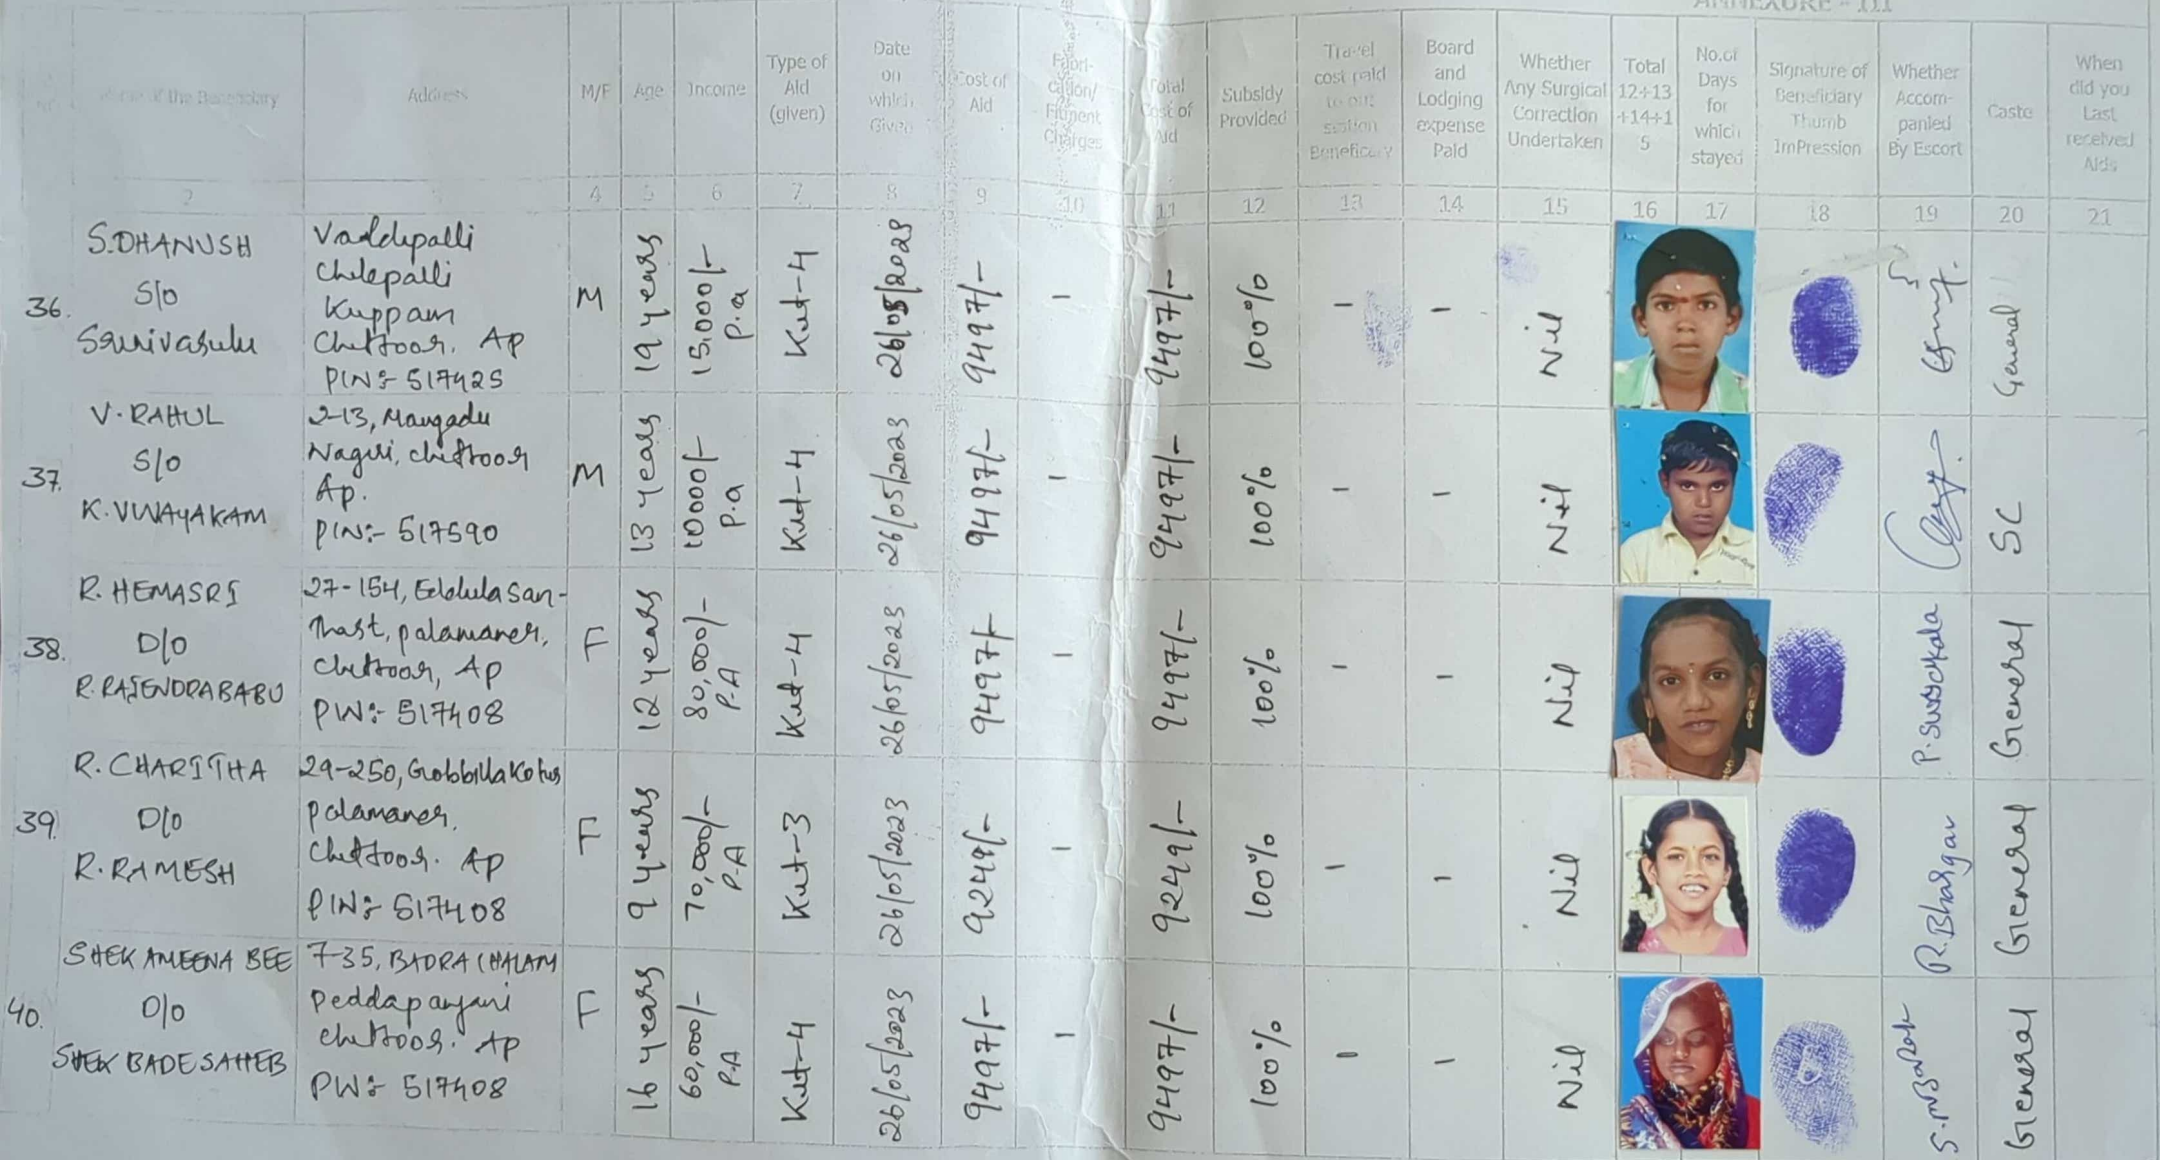 ANNEXURE - III
Name of the Beneficiary
Address
M/F
Age
Income
Type of
Aid
(given)
Date
on
which
Given
Cost of
Aid
Fabri-
cation/
Fitment
Charges
Total
Cost of
Aid
Subsidy
Provided
Travel
cost paid
to out
station
Beneficary
Board
and
Lodging
expense
Paid
Whether
Any Surgical
Correction
Undertaken
Total
12+13
+14+1
5
No.of
Days
for
which
stayed
Signature of
Beneficiary
Thumb
ImPression
Whether
Accom-
panied
By Escort
Caste
When
did you
Last
received
Aids
2 3 4 5 6 7 8 9 10 11 12 13 14 15 16 17 18 19 20 21
36.
S.DHANUSH
S/o
Srinivasulu
Vaddepalli
Chelepalli
Kuppam
Chittoor. AP
PIN:- 517425
M
19 years
15,000/-
p.a
Kit-4
26/05/2023
9497/-
-
9497/-
100%
-
-
Nil
General
37.
V.RAHUL
S/o
K.VINAYAKAM
2-13, Mangadu
Nagiri, chittoor
Ap.
PIN:- 517590
M
13 years
10000/-
p.a
Kit-4
26/05/2023
9497/-
-
9497/-
100%
-
-
Nil
SC
38.
R. HEMASRI
D/o
R.RAJENDRABABU
27-154, Eddula San-
thast, palamaner,
chittoor, AP
PIN:- 517408
F
12 years
80,000/-
P.A
Kit-4
26/05/2023
9497/-
-
9497/-
100%
-
-
Nil
General
39.
R. CHARITHA
D/o
R.RAMESH
29-250, Gobbillakotur
palamaner.
chittoor. AP
PIN:- 517408
F
9 years
70,000/-
P.A
Kit-3
26/05/2023
9249/-
-
9249/-
100%
-
-
Nil
R.Bhargav
General
40.
SHEK AMEENA BEE
D/o
SHEK BADESAHEB
7-35, BADRACHALAM
Peddapanjani
chittoor. AP
PIN:- 517408
F
16 years
60,000/-
P.A
Kit-4
26/05/2023
9497/-
-
9497/-
100%
-
-
Nil
General